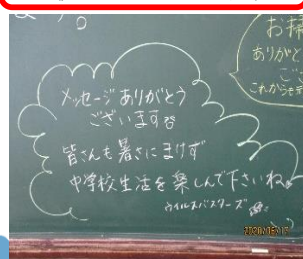 メッセージありがとう
ございます
皆さんも暑さにまけず
中学校生活を楽しんで下さいね。
ウイルスバスターズ
お掃
ありがと
ござ
これからもデ
2020/08/1